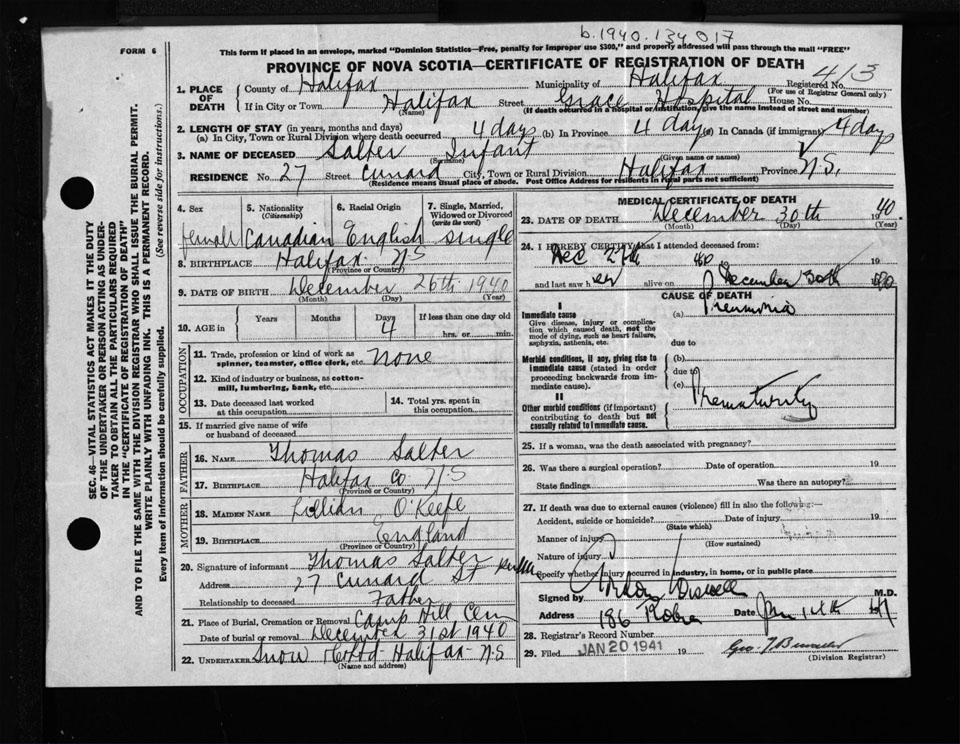 b.1940.134017
FORM 6
This form if placed in an envelope, marked "Dominion Statistics—Free, penalty for improper use $300," and properly addressed will pass through the mail "FREE"
PROVINCE OF NOVA SCOTIA—CERTIFICATE OF REGISTRATION OF DEATH
1. PLACE OF DEATH
County of Halifax Municipality of Halifax Registered No. 413
(For use of Registrar General only)
If in City or Town Halifax Street Grace Hospital House No.
(Name) (If death occurred in a hospital or institution, give the name instead of street and number)
2. LENGTH OF STAY (in years, months and days)
(a) In City, Town or Rural Division where death occurred 4 days (b) In Province 4 days (c) In Canada (if immigrant) 4 days
3. NAME OF DECEASED Salter Infant
(Surname) (Given name or names)
RESIDENCE No. 27 Street Cunard City, Town or Rural Division Halifax Province N.S.
(Residence means usual place of abode. Post Office Address for residents in rural parts not sufficient)
4. Sex 5. Nationality (Citizenship) 6. Racial Origin 7. Single, Married, Widowed or Divorced (write the word)
female Canadian English single
8. BIRTHPLACE Halifax N.S
(Province or Country)
9. DATE OF BIRTH December 26th 1940
(Month) (Day) (Year)
10. AGE in Years Months Days If less than one day old
4 hrs. or min.
OCCUPATION
11. Trade, profession or kind of work as spinner, teamster, office clerk, etc. None
12. Kind of industry or business, as cotton-mill, lumbering, bank, etc.
13. Date deceased last worked at this occupation
14. Total yrs. spent in this occupation
15. If married give name of wife or husband of deceased
FATHER
16. NAME Thomas Salter
17. BIRTHPLACE Halifax Co. N.S
(Province or Country)
MOTHER
18. MAIDEN NAME Lillian O'Keefe
19. BIRTHPLACE England
(Province or Country)
20. Signature of informant Thomas Salter
Address 27 Cunard St
Relationship to deceased Father
21. Place of Burial, Cremation or Removal Camp Hill Cem
Date of burial or removal December 31st 1940
22. UNDERTAKER Snow & Co Ltd Halifax N.S
(Name and address)
MEDICAL CERTIFICATE OF DEATH
23. DATE OF DEATH December 30th 1940.
(Month) (Day) (Year)
24. I HEREBY CERTIFY that I attended deceased from:
Dec 27th 40
and last saw her alive on December 30th 1940
CAUSE OF DEATH
I
Immediate cause (a) Pneumonia
Give disease, injury or complication which caused death, not the mode of dying, such as heart failure, asphyxia, asthenia, etc.
due to
Morbid conditions, if any, giving rise to immediate cause (stated in order proceeding backwards from immediate cause).
(b)
due to
(c)
II
Prematurity
Other morbid conditions (if important) contributing to death but not causally related to immediate cause.
25. If a woman, was the death associated with pregnancy?
26. Was there a surgical operation? Date of operation 19
State findings Was there an autopsy?
27. If death was due to external causes (violence) fill in also the following:—
Accident, suicide or homicide? Date of injury 19
(State which)
Manner of injury
(How sustained)
Nature of injury
Specify whether injury occurred in industry, in home, or in public place
Signed by M.D.
Address 186 Date Jan 41
28. Registrar's Record Number
29. Filed JAN 20 1941 19
(Division Registrar)
SEC. 46—VITAL STATISTICS ACT MAKES IT THE DUTY
OF THE UNDERTAKER OR PERSON ACTING AS UNDER-
TAKER TO OBTAIN ALL THE PARTICULARS REQUIRED
IN THE "CERTIFICATE OF REGISTRATION OF DEATH"
AND TO FILE THE SAME WITH THE DIVISION REGISTRAR WHO SHALL ISSUE THE BURIAL PERMIT.
WRITE PLAINLY WITH UNFADING INK. THIS IS A PERMANENT RECORD.
Every item of information should be carefully supplied. (See reverse side for instructions.)